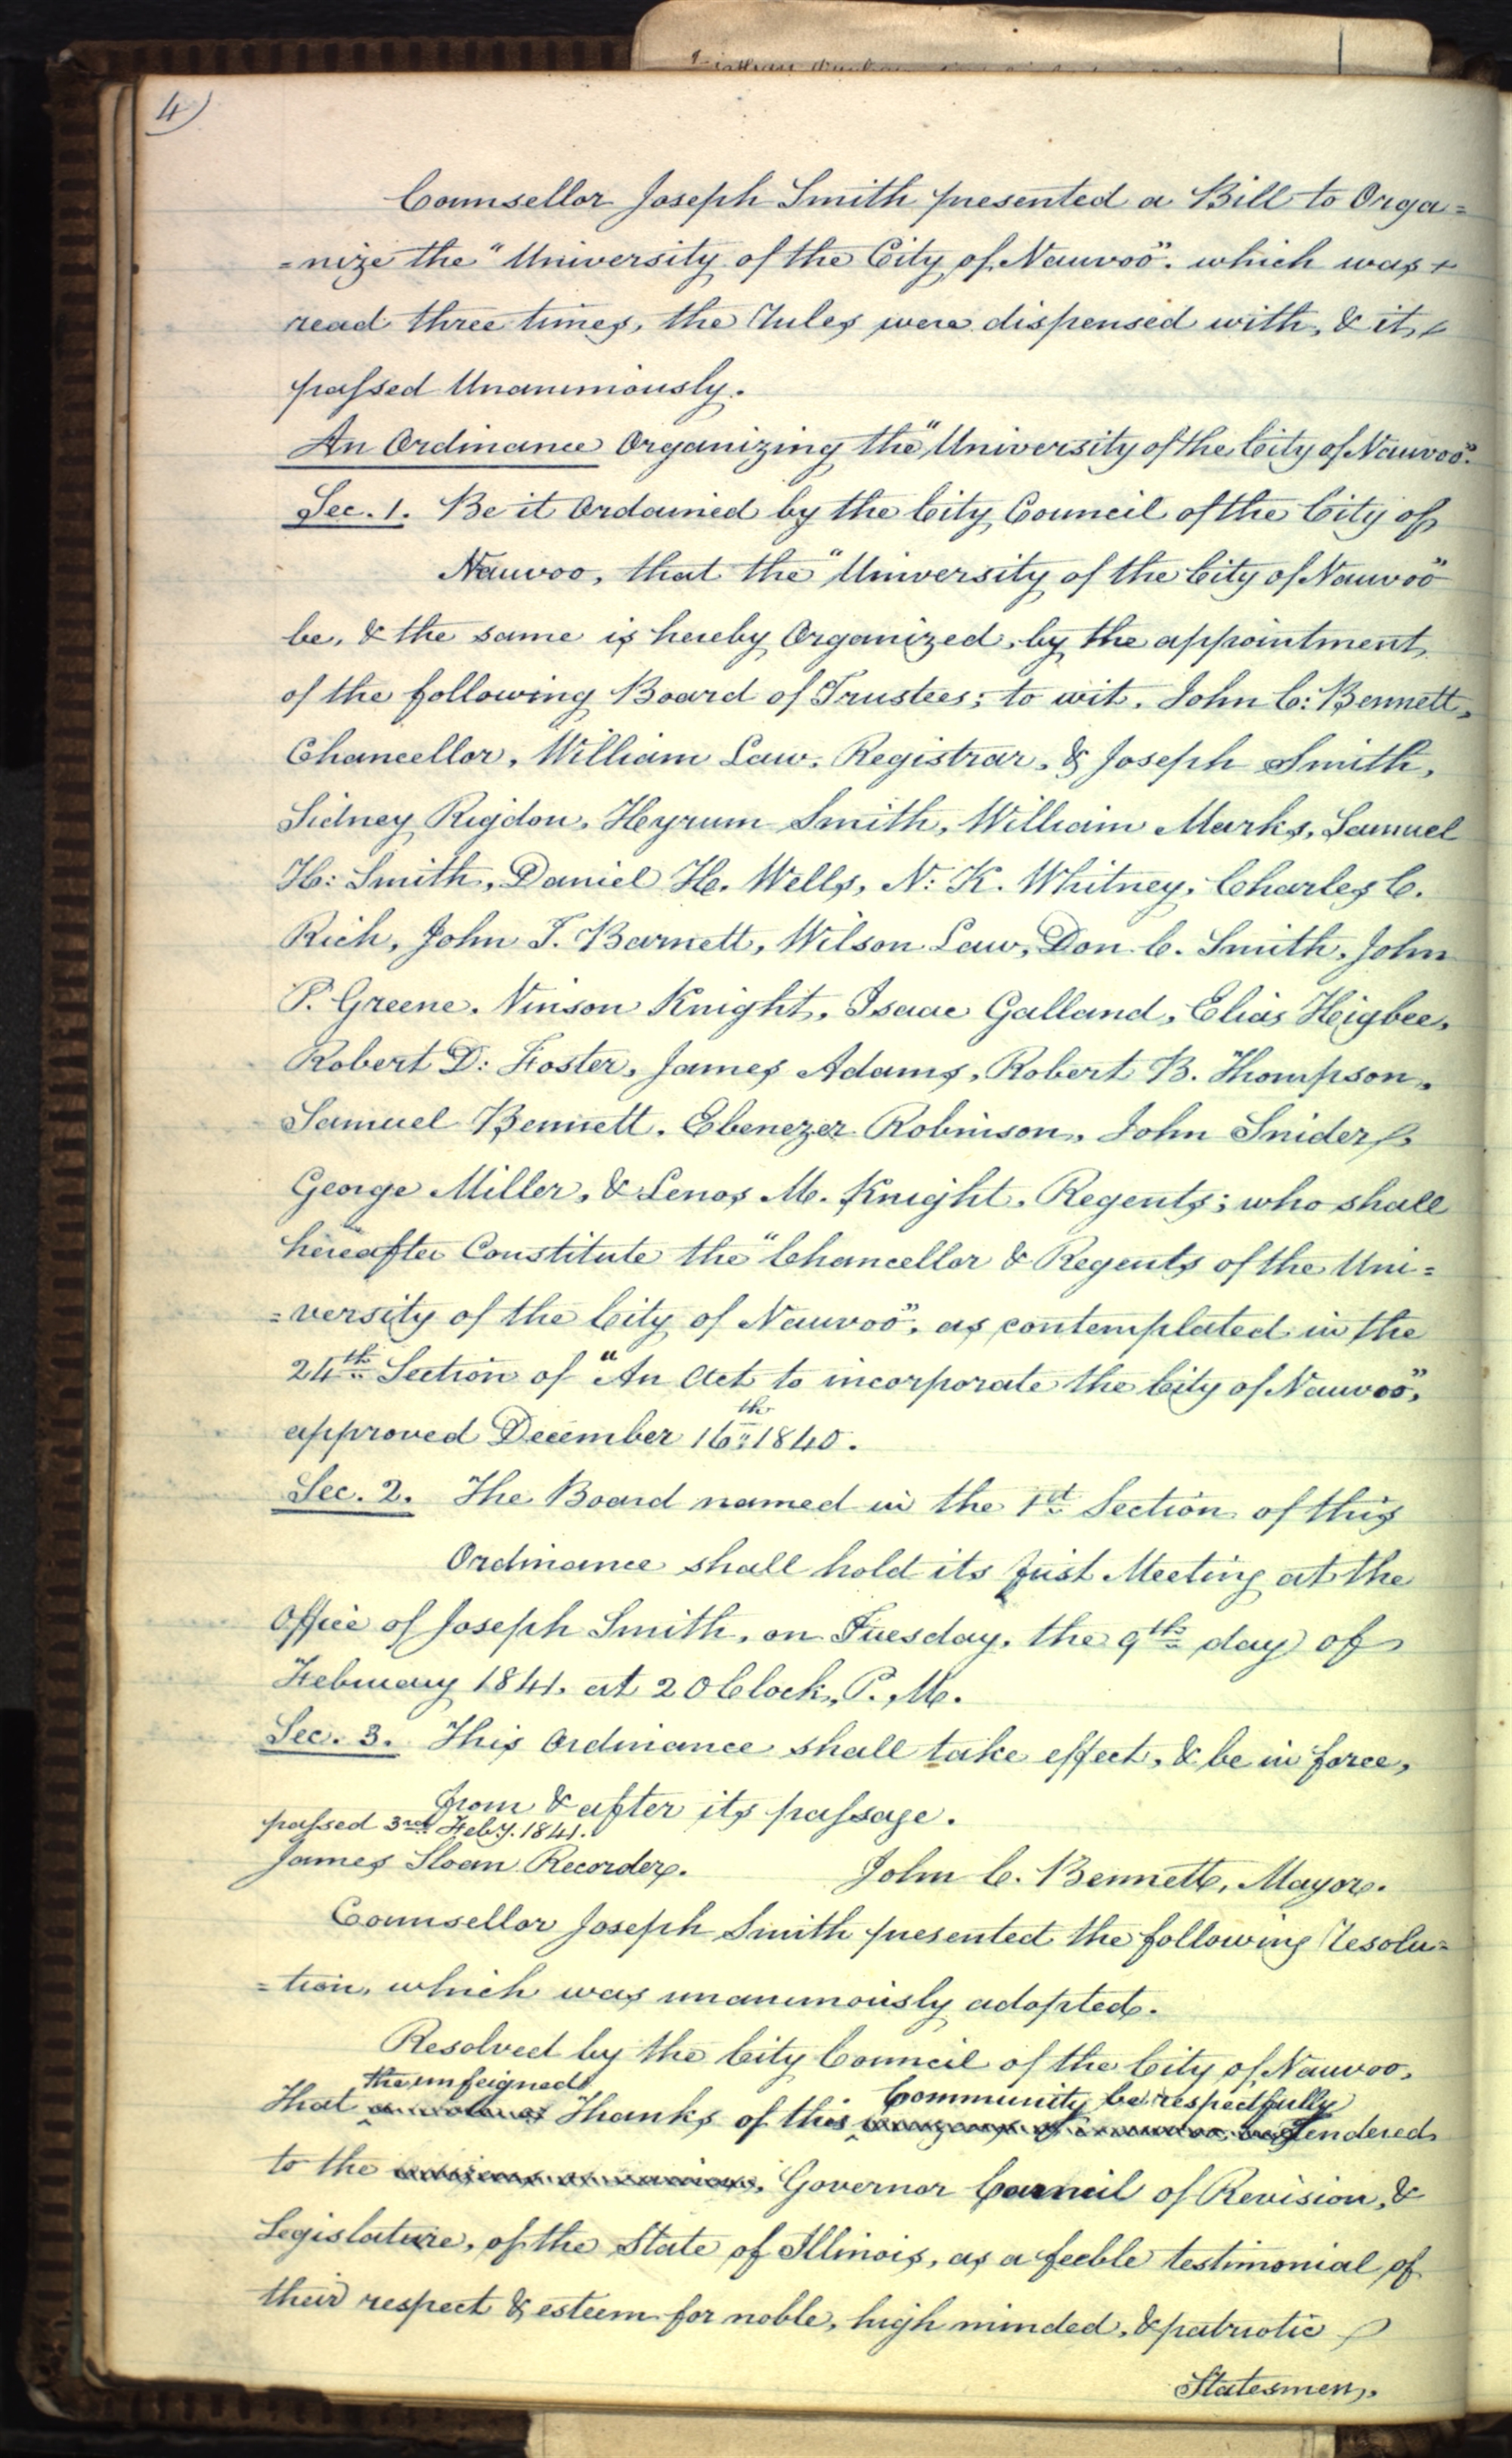 4)
Counsellor Joseph Smith presented a Bill to Orga=
=nize the "University of the City of Nauvoo". which was
read three times, the rules were dispensed with, & it,
passed Unanimously.
An Ordinance Organizing the "University of the City of Nauvoo".
Sec. 1. Be it Ordained by the City Council of the City of
Nauvoo, that the "University of the City of Nauvoo"
be, & the same is hereby Organized, by the appointment,
of the following Board of Trustees; to wit. John C: Bennett,
Chancellor, William Law, Registrar, & Joseph Smith,
Sidney Rigdon, Hyrum Smith, William Marks, Samuel
H: Smith, Daniel H. Wells, N: K. Whitney, Charles C.
Rich, John T. Barnett, Wilson Law, Don C. Smith, John
P. Greene, Vinson Knight, Isaac Galland, Elias Higbee,
Robert D: Foster, James Adams, Robert B. Thompson,
Samuel Bennett, Ebenezer Robinson, John Snider,
George Miller, & Lenos M. Knight, Regents; who shall
hereafter Constitute the "Chancellor & Regents of the Uni=
=versity of the City of Nauvoo", as contemplated in the
24th Section of "An Act to incorporate the City of Nauvoo",
approved December 16th 1840.
Sec. 2. The Board named in the 1st Section of this
Ordinance shall hold its first Meeting at the
Office of Joseph Smith, on Tuesday, the 9th day of
February 1841. at 2 OClock, P. M.
Sec. 3. This Ordinance shall take effect, & be in force,
from & after its passage.
passed 3rd Feby. 1841.
James Sloan Recorder. John C. Bennett, Mayor.
Counsellor Joseph Smith presented the following resolu=
=tion, which was unanimously adopted.
Resolved by the City Council of the City of Nauvoo,
the unfeigned Community be respectfully
That Thanks of this tendered
to the Governor Council of Revision, &
Legislature, of the State of Illinois, as a feeble testimonial of
their respect & esteem for noble, high minded, & patriotic
Statesmen,